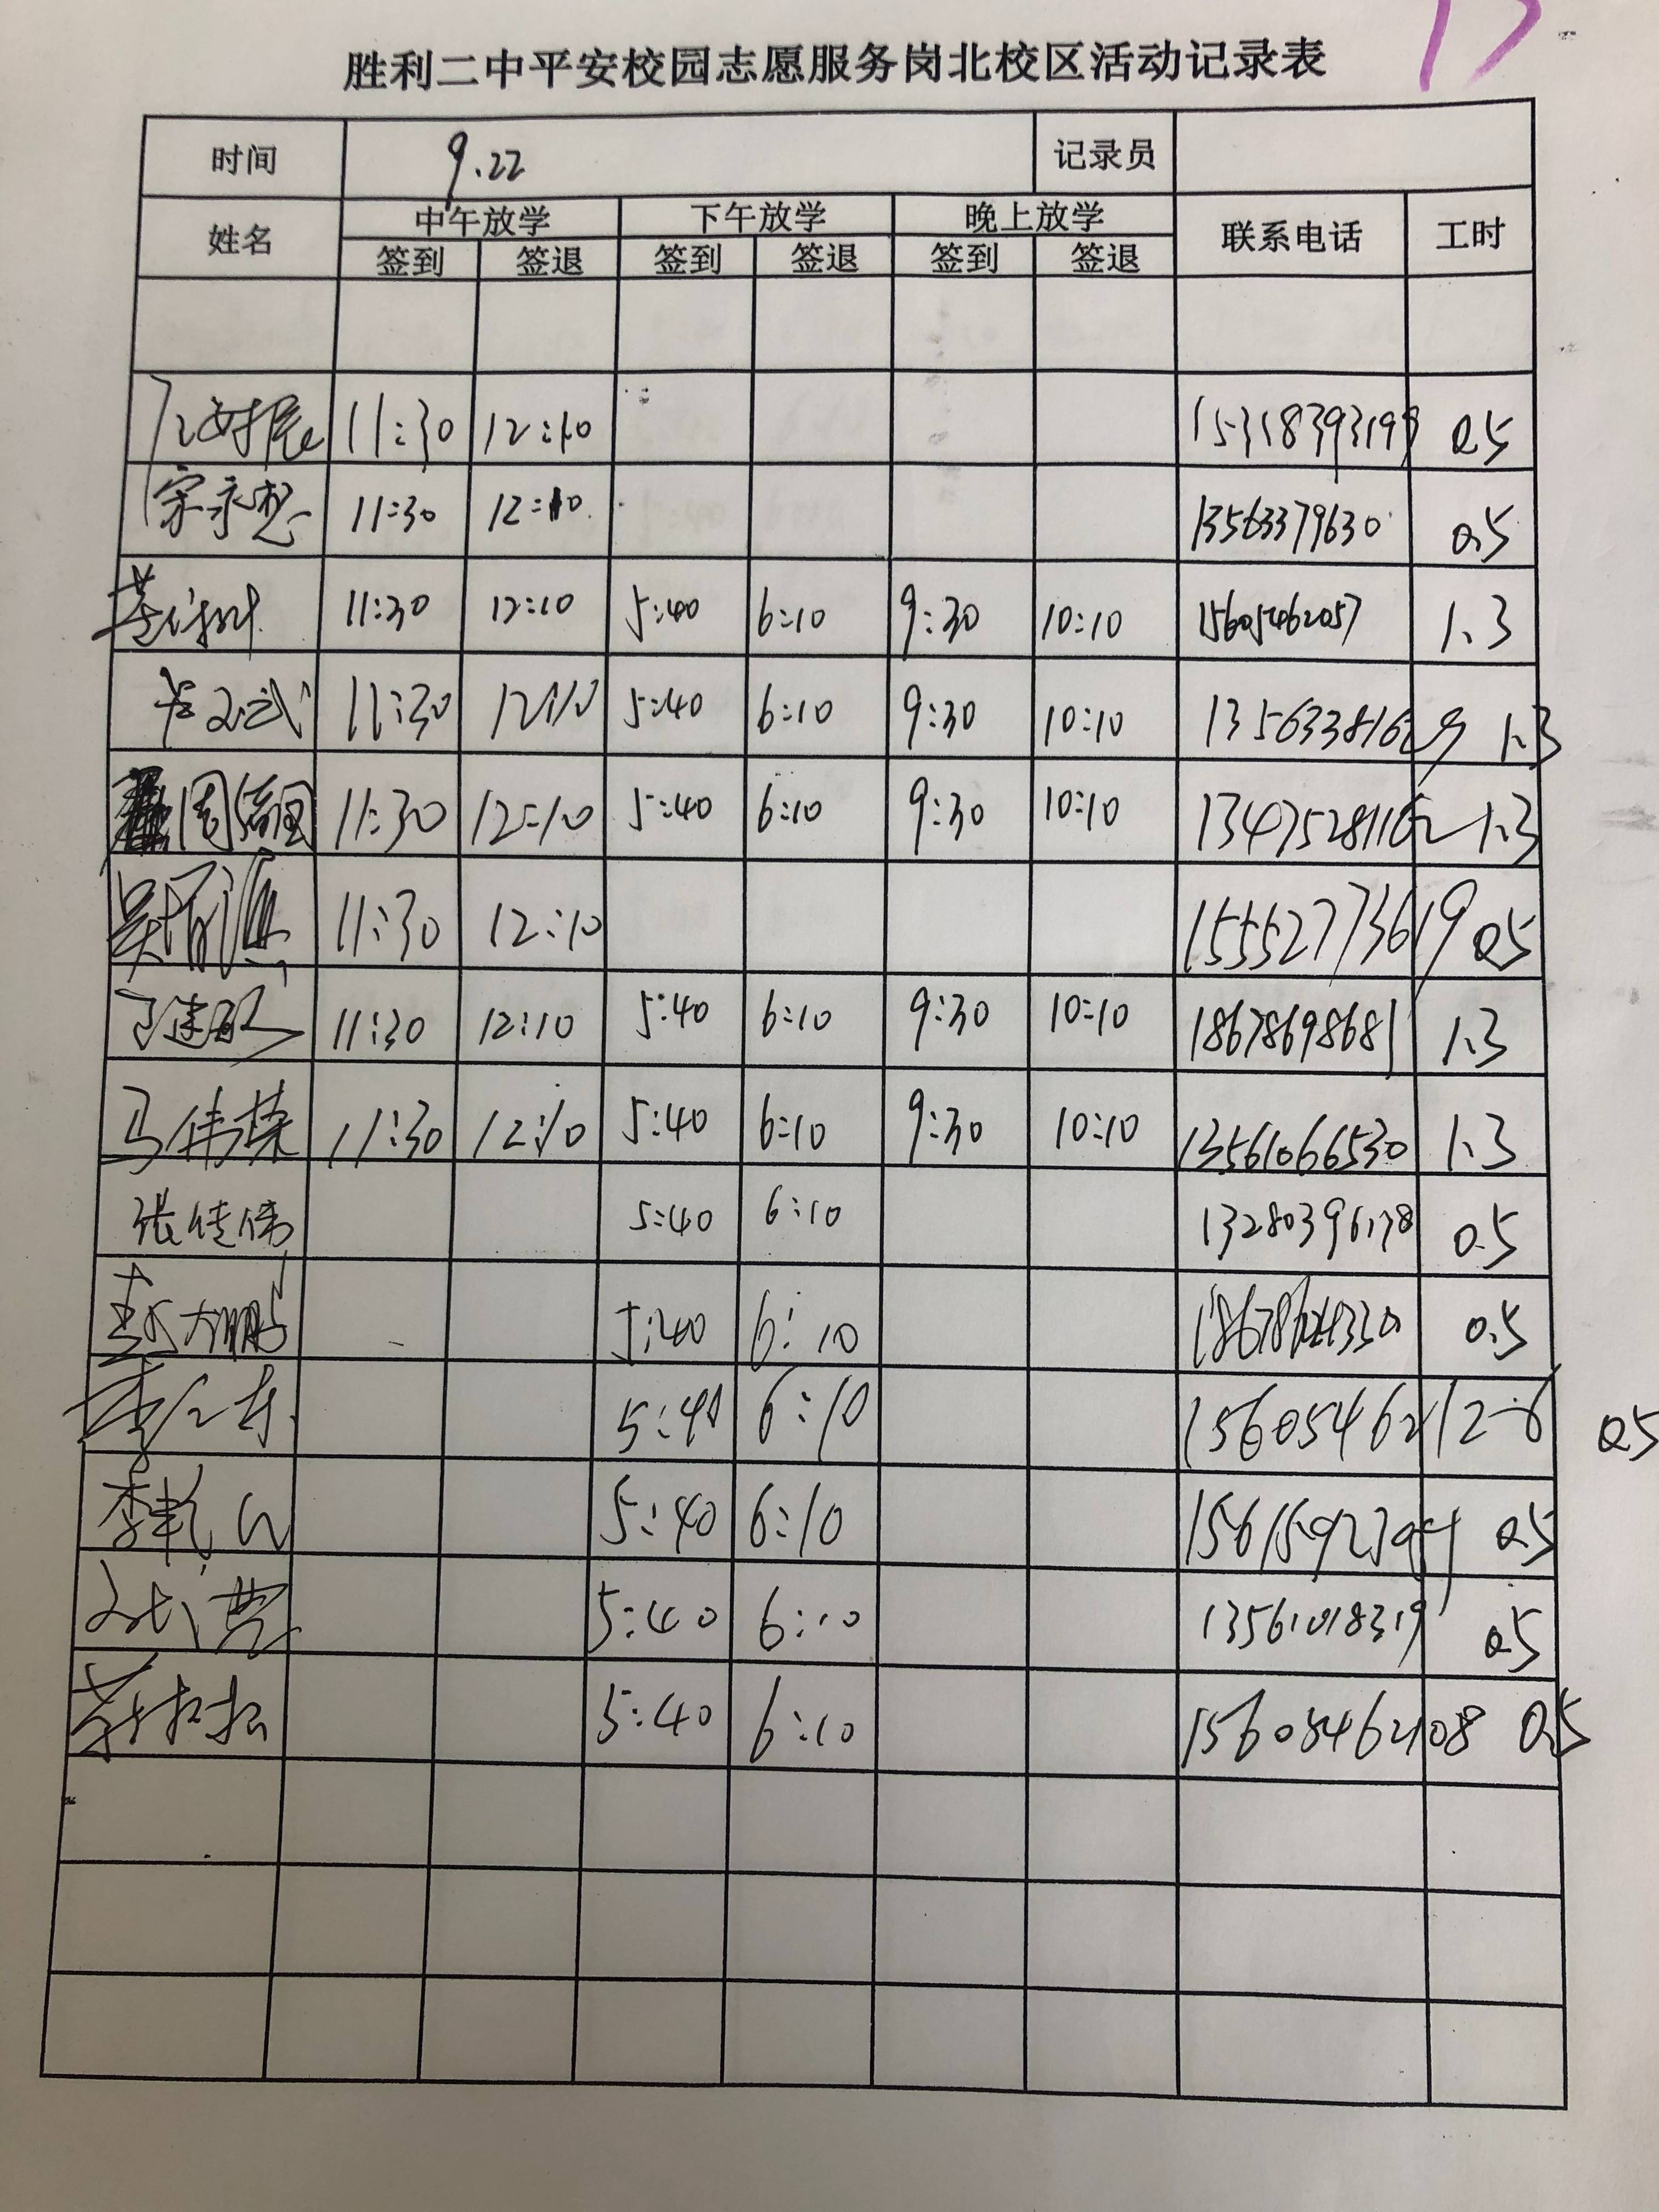 胜利二中平安校园志愿服务岗北校区活动记录表
时间 9.22 记录员
姓名 中午放学 下午放学 晚上放学 联系电话 工时
签到 签退 签到 签退 签到 签退
11:30 12:10 15318393199 0.5
宋永想 11:30 12:10 13563379630 0.5
11:30 12:10 5:40 6:10 9:30 10:10 15605462057 1.3
11:30 12:10 5:40 6:10 9:30 10:10 13563381629 1.3
11:30 12:10 5:40 6:10 9:30 10:10 13475281162 1.3
11:30 12:10 15552773619 0.5
11:30 12:10 5:40 6:10 9:30 10:10 18678698681 1.3
马伟荣 11:30 12:10 5:40 6:10 9:30 10:10 13561066530 1.3
张佳伟 5:40 6:10 13280396178 0.5
5:40 6:10 0.5
5:40 6:10 0.5
5:40 6:10 0.5
5:40 6:10 13561018319 0.5
5:40 6:10 15605462108 0.5